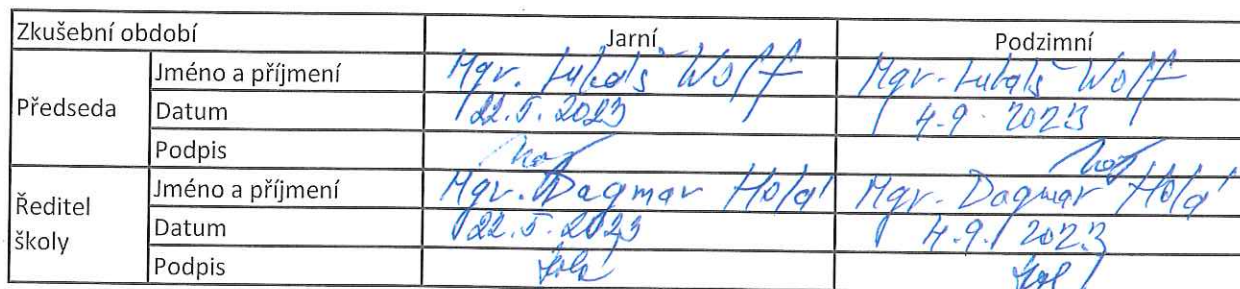 Zkušební období Jarní Podzimní
Předseda Jméno a příjmení Mgr. Lukáš Wolff Mgr. Lukáš Wolff
Datum 22.5.2023 4.9.2023
Podpis
Ředitel školy Jméno a příjmení Mgr. Dagmar Holá Mgr. Dagmar Holá
Datum 22.5.2023 4.9.2023
Podpis